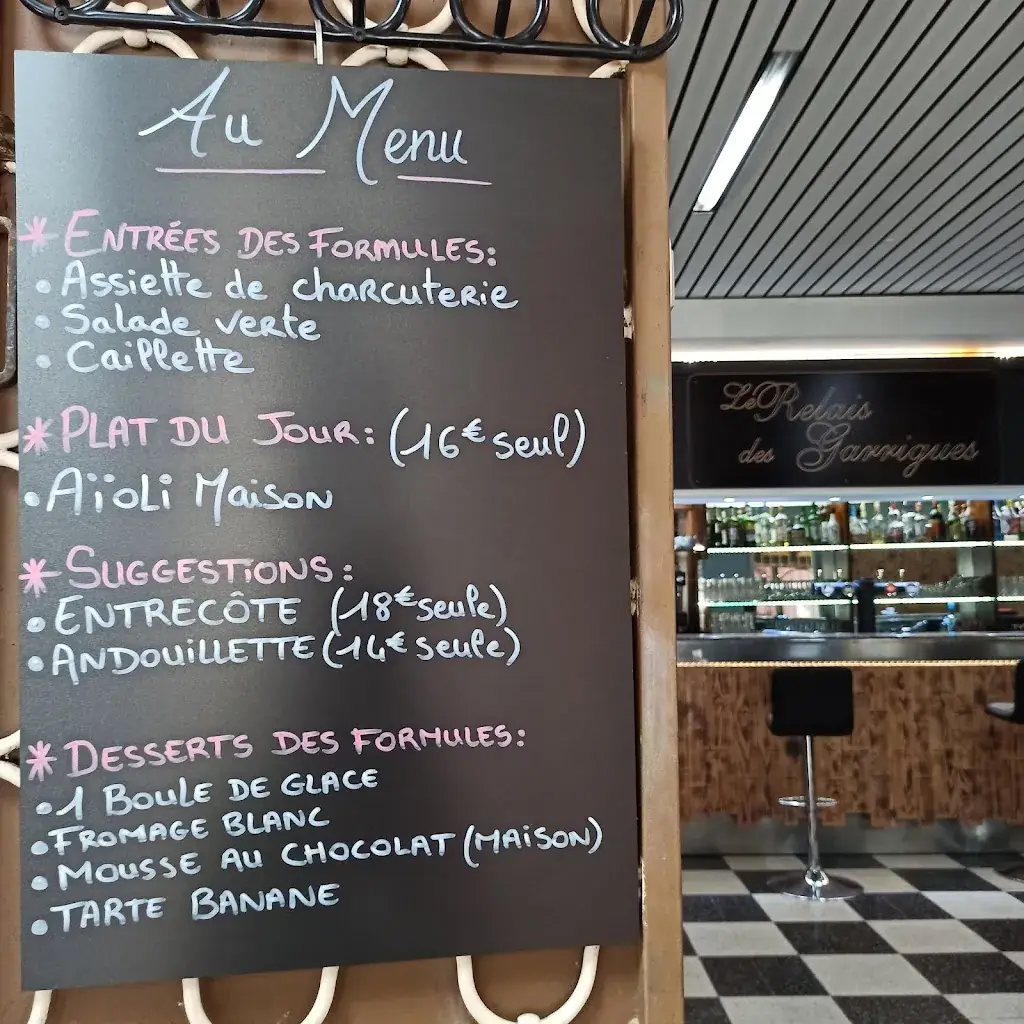 Au Menu
* ENTRÉES DES FORMULES:
• Assiette de charcuterie
• Salade verte
• Caillette
* PLAT DU JOUR: (16€ seul)
• AÏOLI MAISON
* SUGGESTIONS:
• ENTRECÔTE (18€ seule)
• ANDOUILLETTE (14€ seule)
* DESSERTS DES FORMULES:
• 1 BOULE DE GLACE
• FROMAGE BLANC
• MOUSSE AU CHOCOLAT (MAISON)
• TARTE BANANE
Le Relais
des Garrigues